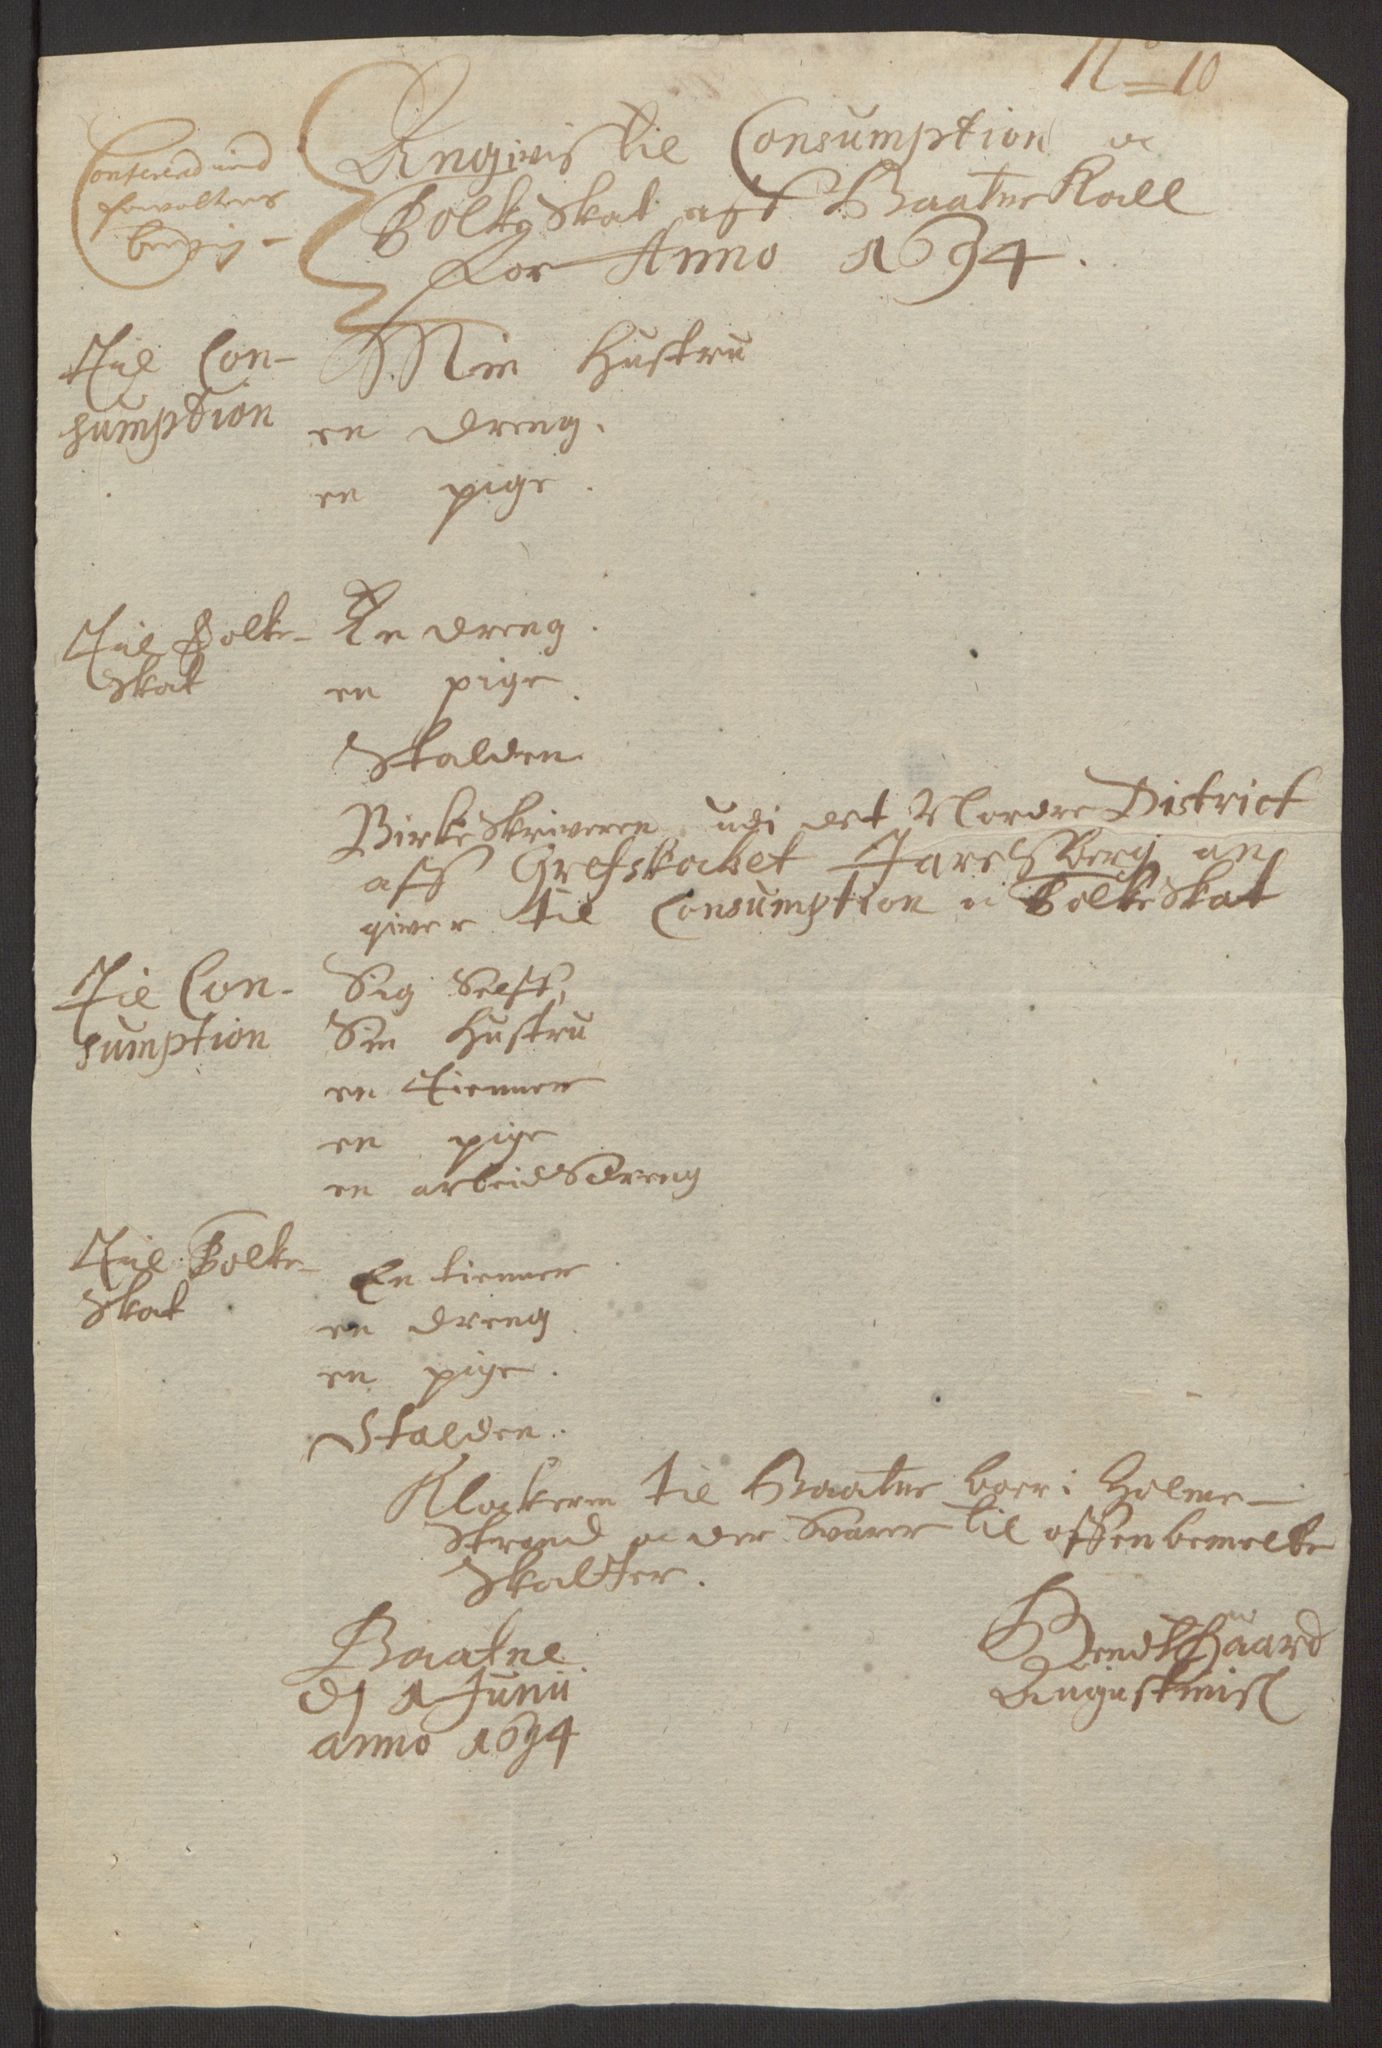 No 10
Angivis til Consumption oc
Folke Skat aff Baatne Kall
for Anno 1694.
Til Con-
sumption
Min Hustru
en dreng.
en pige.
Til Folke-
Skat
En dreng.
en pige.
Stalden
Birkeskriveren udi det Nordre District
aff Grefskabet Jarelsberg an
giver til Consumption oc Folke Skat
Til Con-
sumption
Sig Selff,
Sin Hustru
en tienner
en pige
en arbeidsdreng
Til Folke-
Skat
En tienner
en dreng
en pige.
Stalden.
Klockeren til Baatne boer i Holme-
strand oc der Svarer til offuenbemelte
Skatter.
Baatne
d 1 Junii
anno 1694